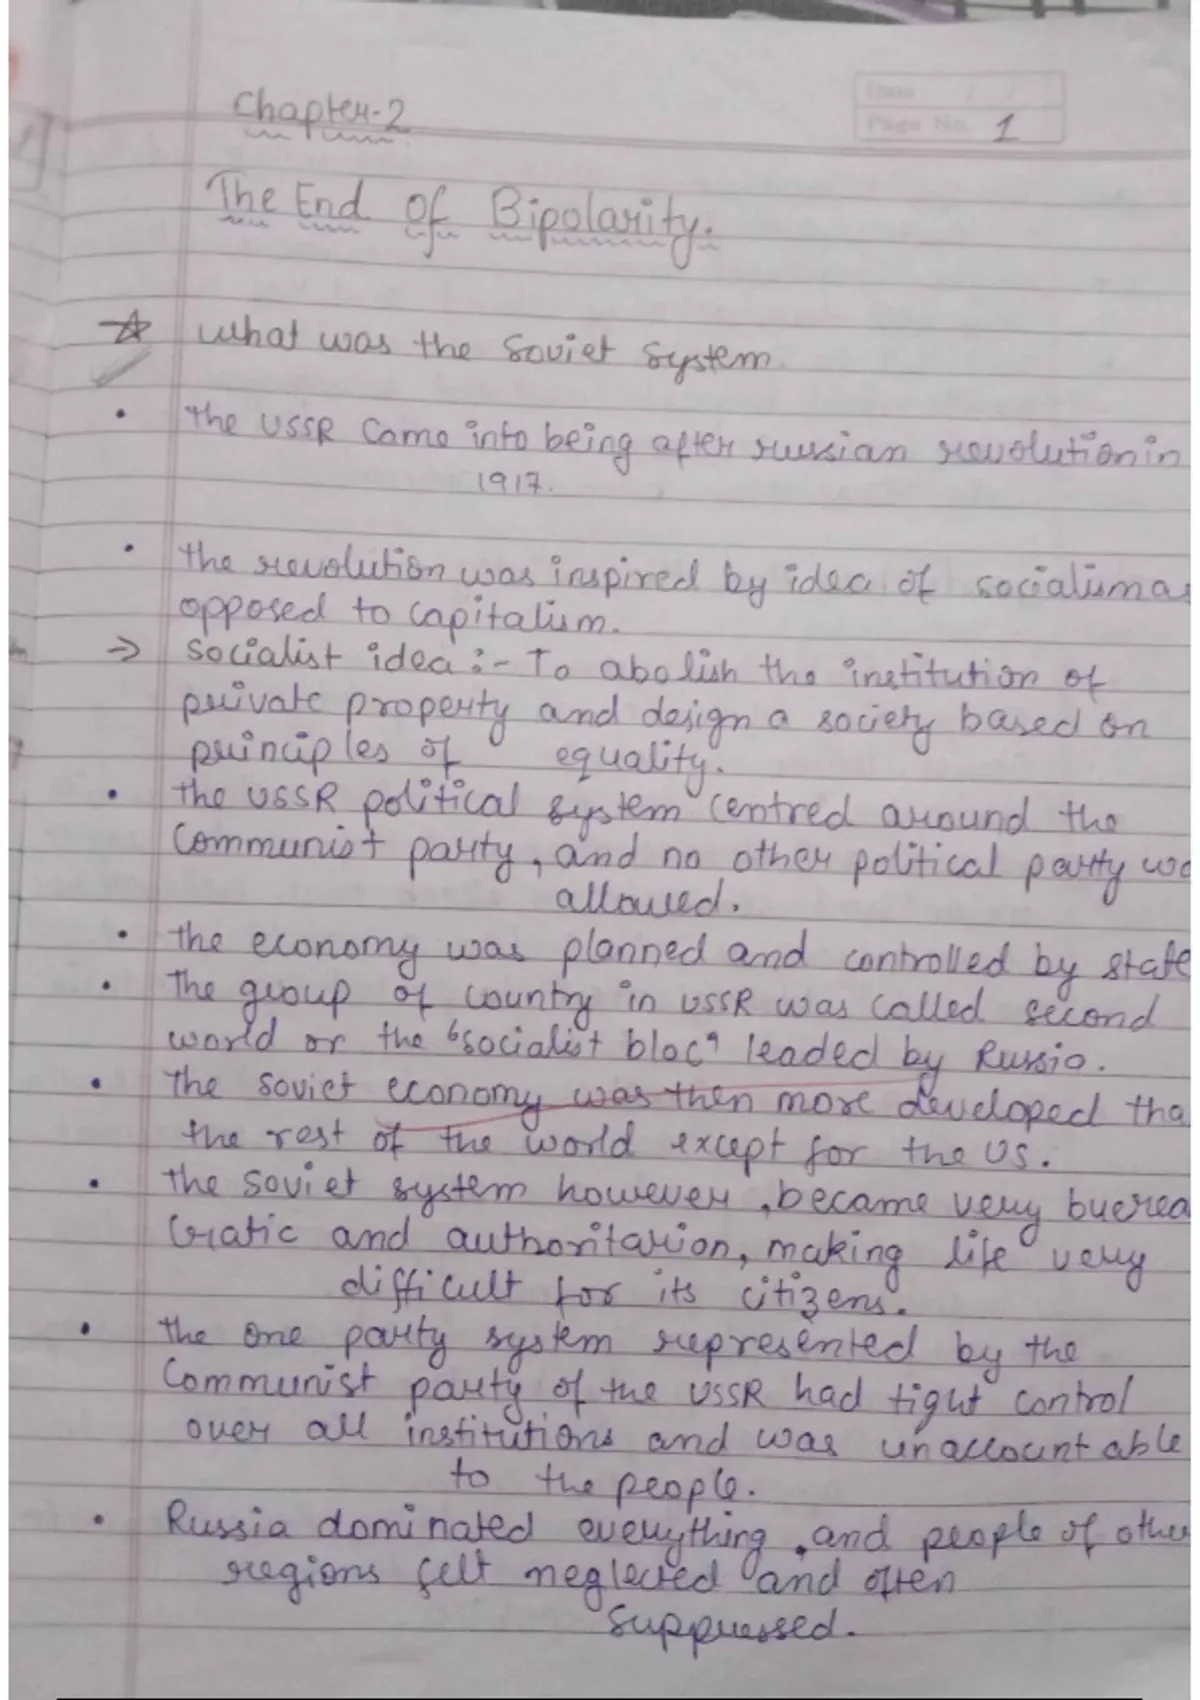 Date / /
Page No. 1
Chapter-2
The End of Bipolarity.
what was the Soviet System.
• the USSR came into being after russian revolution in
1917.
• the revolution was inspired by idea of socialism as
opposed to capitalism.
→ Socialist idea :- To abolish the institution of
private property and design a society based on
principles of equality.
• the USSR political system centred around the
Communist party, and no other political party wa
allowed.
• the economy was planned and controlled by state
• The group of country in USSR was called second
world or the "socialist bloc" leaded by Russia.
• The Soviet economy was then more developed tha
the rest of the world except for the US.
• the Soviet system however, became very buerea
cratic and authoritarion, making life very
difficult for its citizens.
• the one party system represented by the
Communist party of the USSR had tight control
over all institutions and was unaccountable
to the people.
• Russia dominated everything, and people of other
regions felt neglected and often
Suppressed.